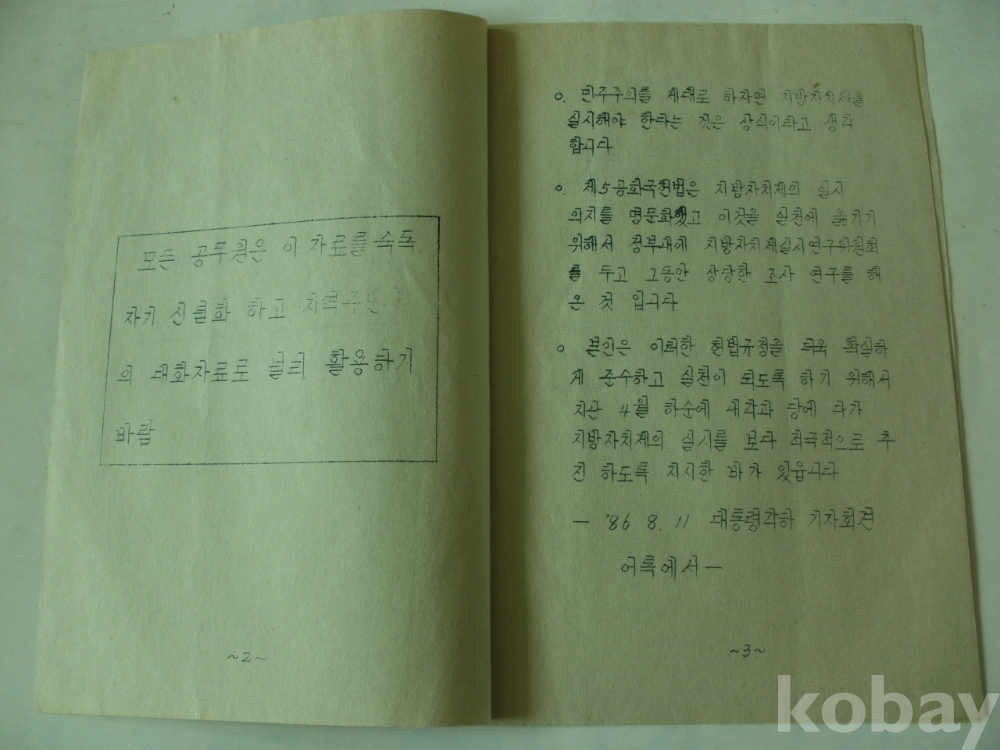 모든 공무원은 이 자료를 숙독,
자기 신념화 하고 지역주민과
의 대화자료로 널리 활용하기
바람
~2~
o. 민주주의를 제대로 하자면 지방자치제를
실시해야 한다는 것은 상식이라고 생각
합니다
o. 제5공화국헌법은 지방자치제의 실시
의지를 명문화했고 이것을 실천에 옮기기
위해서 정부내에 지방자치제실시연구위원회
를 두고 그동안 상당한 조사 연구를 해
온 것 입니다
o 본인은 이러한 헌법규정을 더욱 확실하
게 준수하고 실천이 되도록 하기 위해서
지난 4월 하순에 내각과 당에 다가
지방자치제의 실시를 보다 적극적으로 추
진 하도록 지시한 바가 있읍니다
— '86 8. 11 대통령각하 기자회견
어록에서 —
~3~
kobay